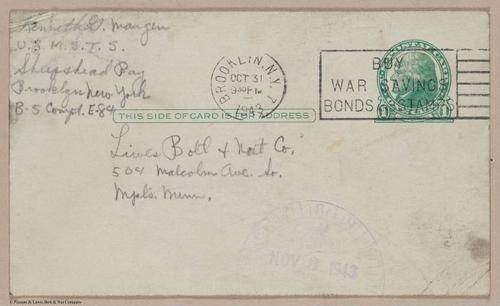 Kenneth D. Maugen
U.S.M.S.T.S.
Sheepshead Bay
Brooklyn New York
B-5 Compt. E-84
BROOKLYN, N.Y. 7
OCT 31
930 PM
1943
BUY
WAR SAVINGS
BONDS & STAMPS
THIS SIDE OF CARD IS FOR ADDRESS
Lewis Bolt & Nut Co.
504 Malcolm Ave. So.
Mpls. Minn.
NOV 1943